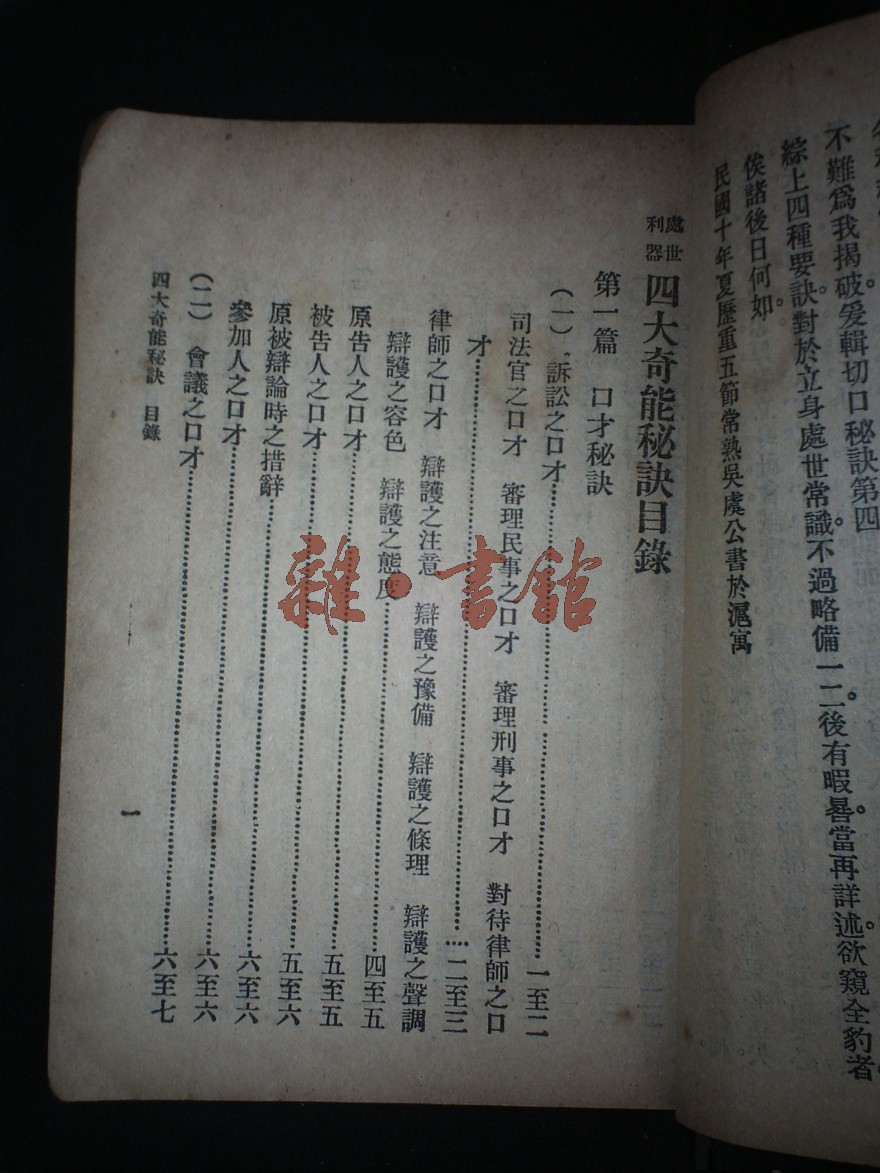 不難爲我揭破爰輯切口秘訣第四
綜上四種要訣對於立身處世常識不過略備一二後有暇晷當再詳述欲窺全豹者
俟諸後日何如
民國十年夏歷重五節常熟吳虞公書於滬寓
處世利器 四大奇能秘訣目錄
第一篇 口才秘訣
(一) 訴訟之口才……一至二
司法官之口才 審理民事之口才 審理刑事之口才 對待律師之口
才……二至三
律師之口才 辯護之注意 辯護之豫備 辯護之條理 辯護之聲調
辯護之容色 辯護之態度
原告人之口才……四至五
被告人之口才……五至五
原被辯論時之措辭……五至六
參加人之口才……六至六
(二) 會議之口才……六至七
四大奇能秘訣 目錄
一
雜·書館